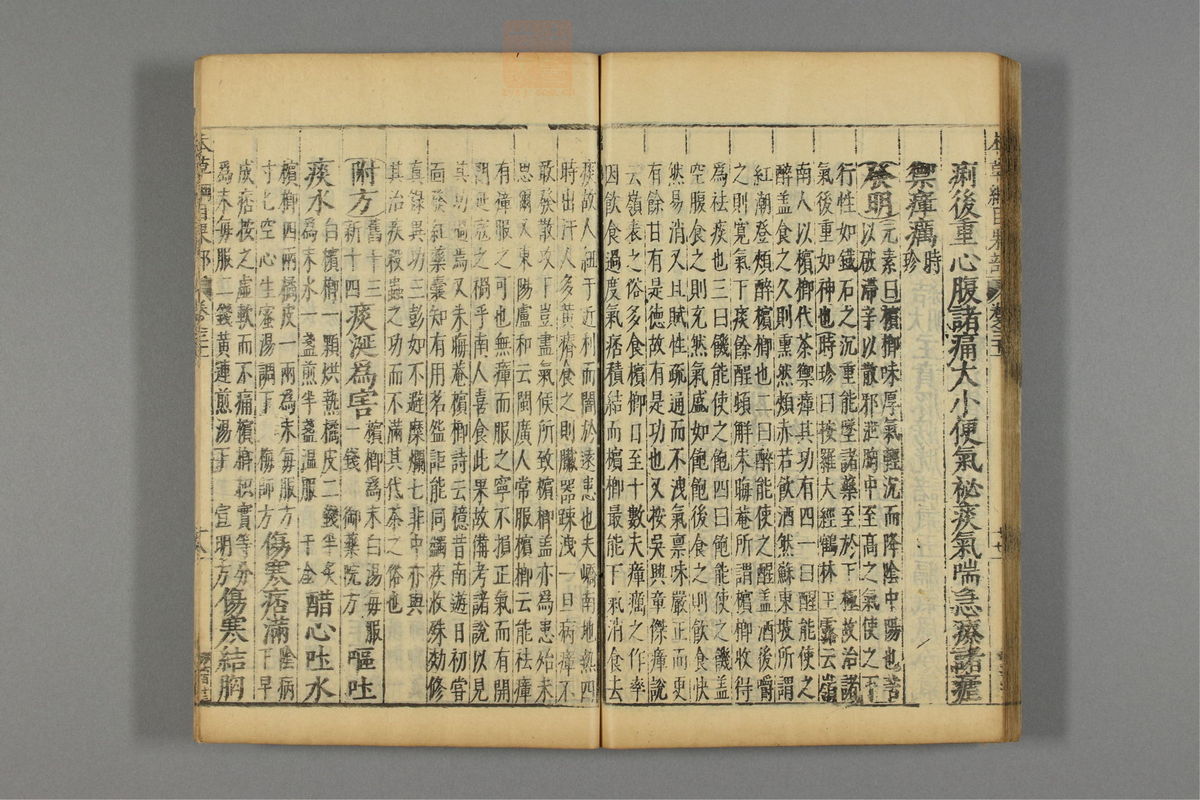 痢後重心腹諸痛大小便氣祕痰氣喘急療諸瘧
禦瘴癘時珍
發明元素曰檳榔味厚氣輕沉而降陰中陽也苦
以破滯辛以散邪泄胸中至高之氣使之下
行性如鐵石之沉重能墜諸藥至於下極故治諸
氣後重如神也時珍曰按羅大經鶴林玉露云嶺
南人以檳榔代茶禦瘴其功有四一曰醒能使之
醉盖食之久則熏然頰赤若飲酒然蘇東坡所謂
紅潮登頰醉檳榔也二曰醉能使之醒盖酒後嚼
之則寛氣下痰餘醒頓解朱晦菴所謂檳榔收得
為祛痰也三曰饑能使之飽四曰飽能使之饑盖
空腹食之則充然氣盛如飽飽後食之則飲食快
然易消又且賦性疏通而不洩氣禀味嚴正而更
有餘甘有是德故有是功也又按吳興章傑作瘴說
云嶺表之俗多食檳榔日至十數夫瘴癘之作率
因飲食過度氣痞積結而檳榔最能下氣消食去
痰故人狃于近利而闇於遠患也夫嶠南地熱四
時出汗人多黄瘠食之則臟器踈洩一旦病瘴不
敢發散攻下豈盡氣候所致檳榔盖亦為患殆未
思爾又東陽盧和云閩廣人常服檳榔云能祛瘴
有瘴服之可也無瘴服之寧不損正氣而有開
門延寇之禍乎南人喜食此果故備考諸說以見
其功過焉又朱晦菴檳榔詩云憶昔南遊日初嘗
面發紅藥囊知有用茗盌詎能同蠲疾收殊効修
真録異功三彭如不避糜爛七非中亦與
其治疾殺蟲之功而不滿其代茶之俗也
附方舊十三新十四痰涎為害檳榔為末白湯毎服一錢御藥院方嘔吐
痰水白檳榔一顆烘熱橘皮二錢半炙為末水一盞煎半盞温服千金醋心吐水
檳榔四兩橘皮一兩為末毎服方寸匕空心生蜜湯調下梅師方傷寒痞滿陰病下早
成痞按之虚軟而不痛檳榔枳實等分為末毎服二錢黄連煎湯下宣明方傷寒結胸